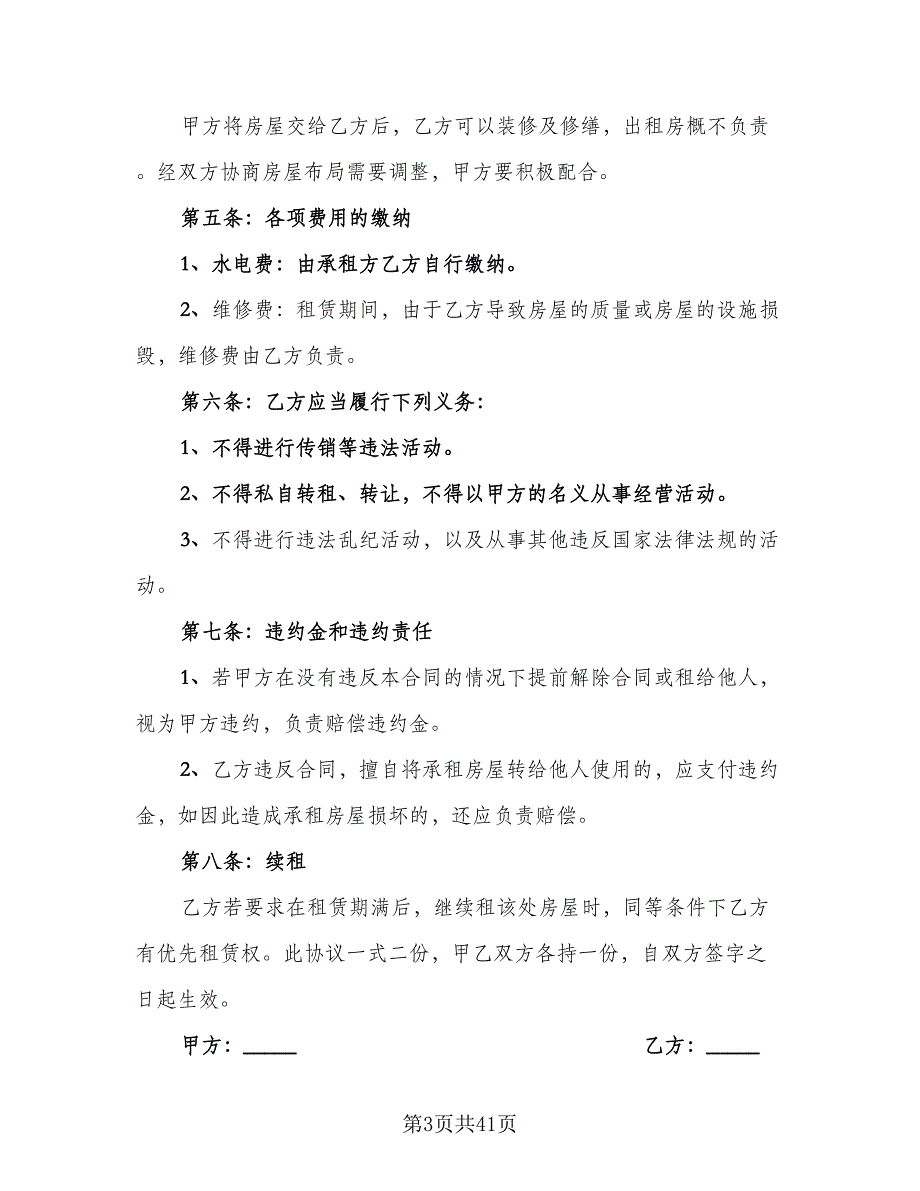 甲方将房屋交给乙方后，乙方可以装修及修缮，出租房概不负责
。经双方协商房屋布局需要调整，甲方要积极配合。
第五条：各项费用的缴纳
1、水电费：由承租方乙方自行缴纳。
2、维修费：租赁期间，由于乙方导致房屋的质量或房屋的设施损
毁，维修费由乙方负责。
第六条：乙方应当履行下列义务：
1、不得进行传销等违法活动。
2、不得私自转租、转让，不得以甲方的名义从事经营活动。
3、不得进行违法乱纪活动，以及从事其他违反国家法律法规的活
动。
第七条：违约金和违约责任
1、若甲方在没有违反本合同的情况下提前解除合同或租给他人，
视为甲方违约，负责赔偿违约金。
2、乙方违反合同，擅自将承租房屋转给他人使用的，应支付违约
金，如因此造成承租房屋损坏的，还应负责赔偿。
第八条：续租
乙方若要求在租赁期满后，继续租该处房屋时，同等条件下乙方
有优先租赁权。此协议一式二份，甲乙双方各持一份，自双方签字之
日起生效。
甲方：_____ 乙方：_____
第3页共41页